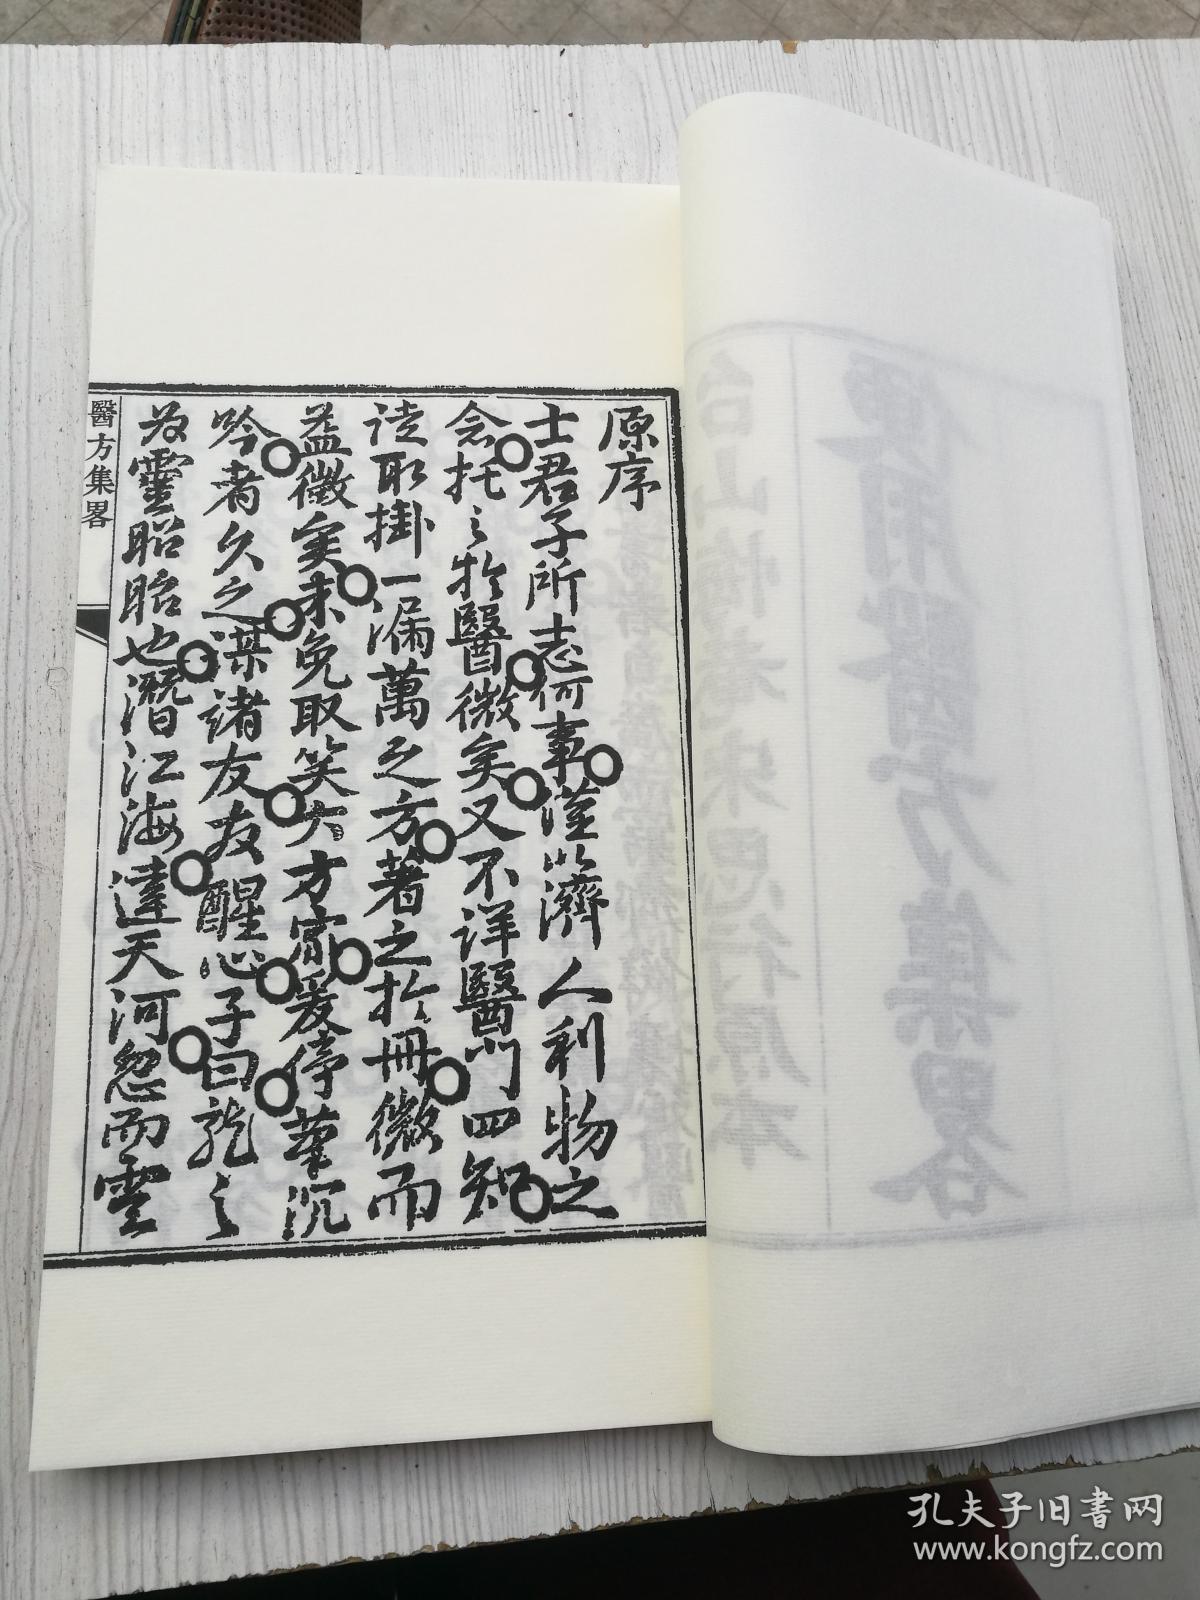 原序
士君子所志何事謹以濟人利物之
念托之於醫微矣又不詳醫門四知
徒取掛一漏萬之方著之於冊微而
益微矣未免取笑大方家爰停筆沉
吟者久之謀諸友友醒心子曰龍之
為靈昭昭也潛江海達天河忽而雲
醫方集畧
便用醫方集畧
孔夫子旧书网
www.kongfz.com